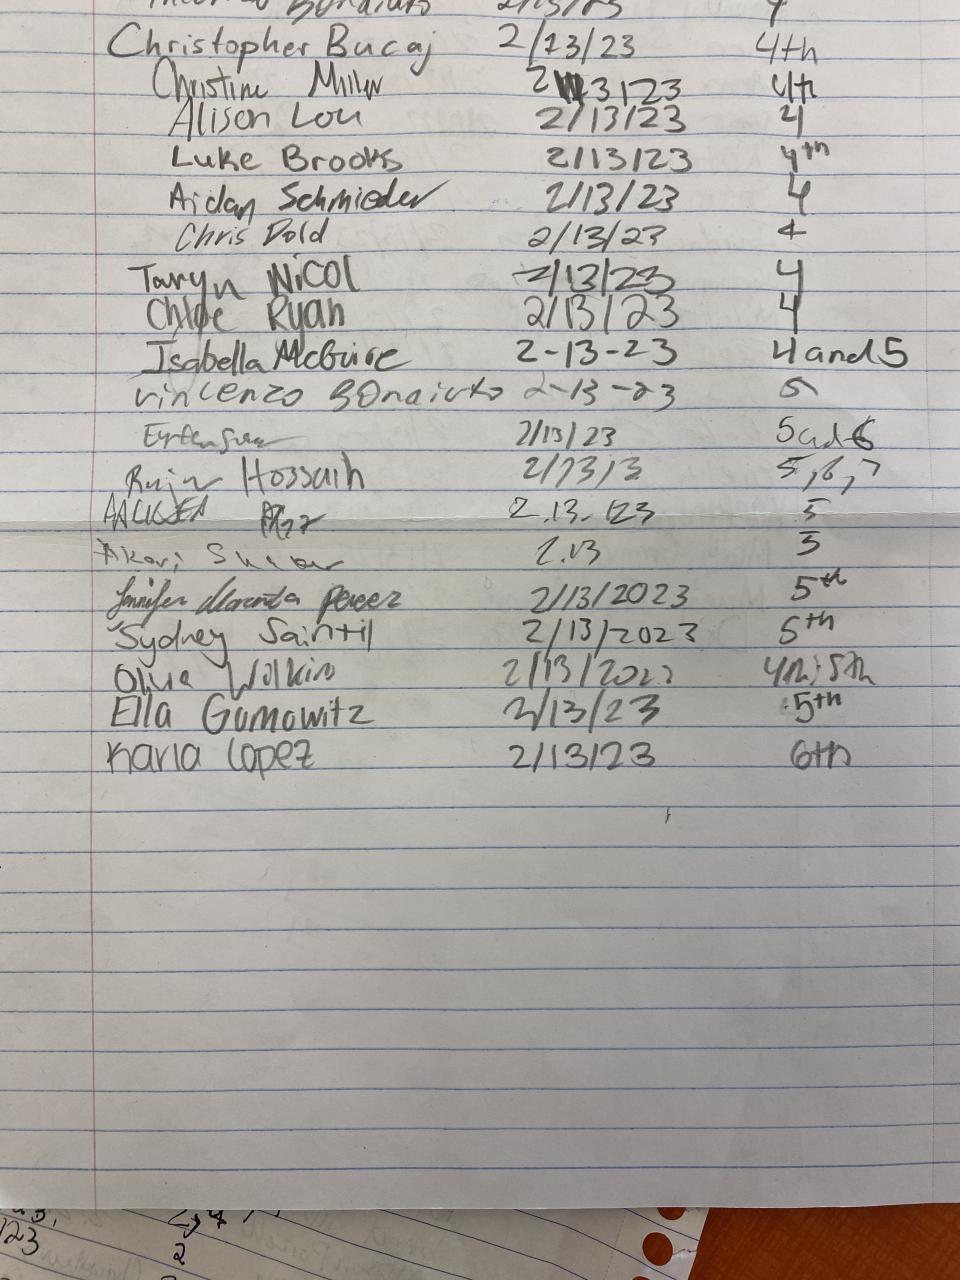 Bonaiuto 2/13/23 4
Christopher Bucaj 2/13/23 4th
Christine Miller 2 3/23 4th
Alisen Lou 2/13/23 4
Luke Brooks 2/13/23 4th
Aidan Schmieder 2/13/23 4
Chris Dold 2/13/23 4
Taryn NiCOL 2/13/23 4
Chloe Ryan 2/13/23 4
Isabella McGuire 2-13-23 4 and 5
Vincenzo BOnaiuto 2-13-23 5
2/13/23 5 and 6
Hossain 2/13/3 5,6,7
2.13.123 5
Akari 2.13 5
Jennifer Miranda perez 2/13/2023 5th
Sydney Saintil 2/13/2023 5th
Olivia Wilkins 2/13/2023 4th; 5th
Ella Gomowitz 2/13/23 5th
Karla Lopez 2/13/23 6th
123 2,4
2